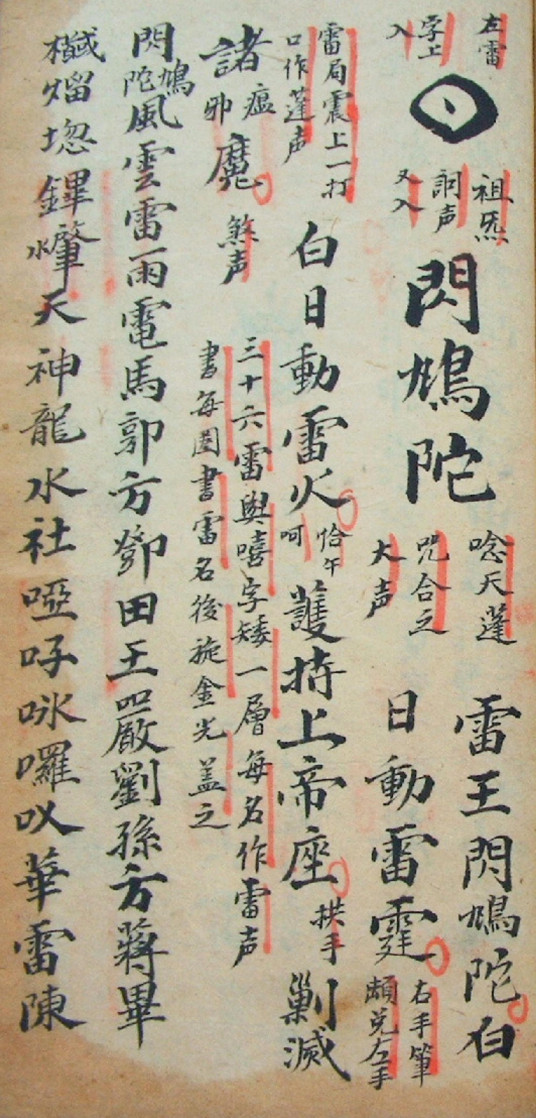 左雷
字上
入
祖炁
詞声
又入
閃鳩陀
唸天蓬
咒合之
大声
雷王閃鳩陀白
日動雷霆
右手筆
兌左手
雷局震上一打
口作蓬声
白日動雷火
恰午
呵
護持上帝座
拱手
剿滅
諸
瘟
邪
魔
煞声
三十六雷與嘻字矮一層每名作雷声
書每圈書雷名後旋金光蓋之
閃鳩陀風雲雷雨電馬郭方鄧田王嚴劉孫方蔣畢
熘鏎肇水天神龍水社啞吇咏囉㕥華雷陳